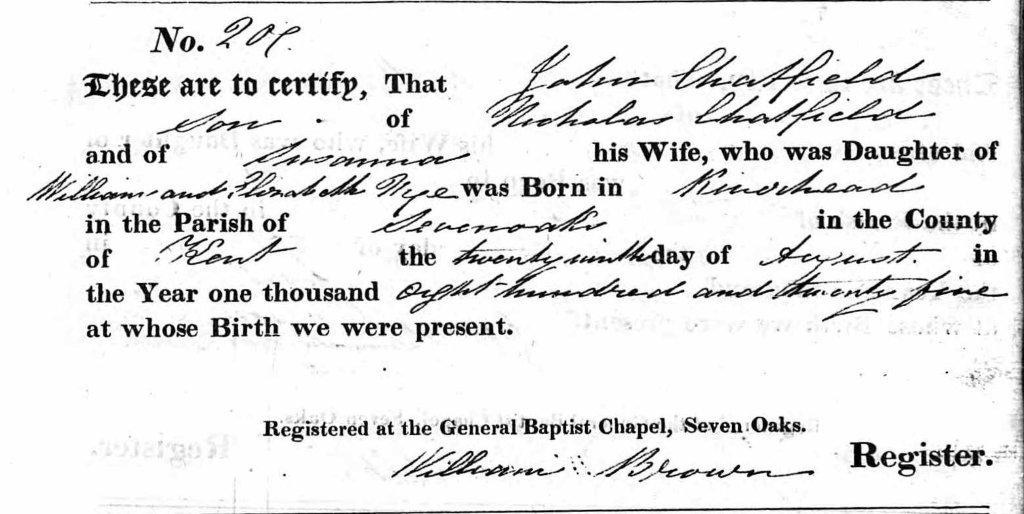 No. 201
These are to certify, That John Chatfield
Son of Nicholas Chatfield
and of Susanna his Wife, who was Daughter of
William and Elizabeth Nye was Born in Riverhead
in the Parish of Sevenoaks in the County
of Kent the twenty ninth day of August. in
the Year one thousand eight hundred and twenty five
at whose Birth we were present.
Registered at the General Baptist Chapel, Seven Oaks.
William Brown Register.